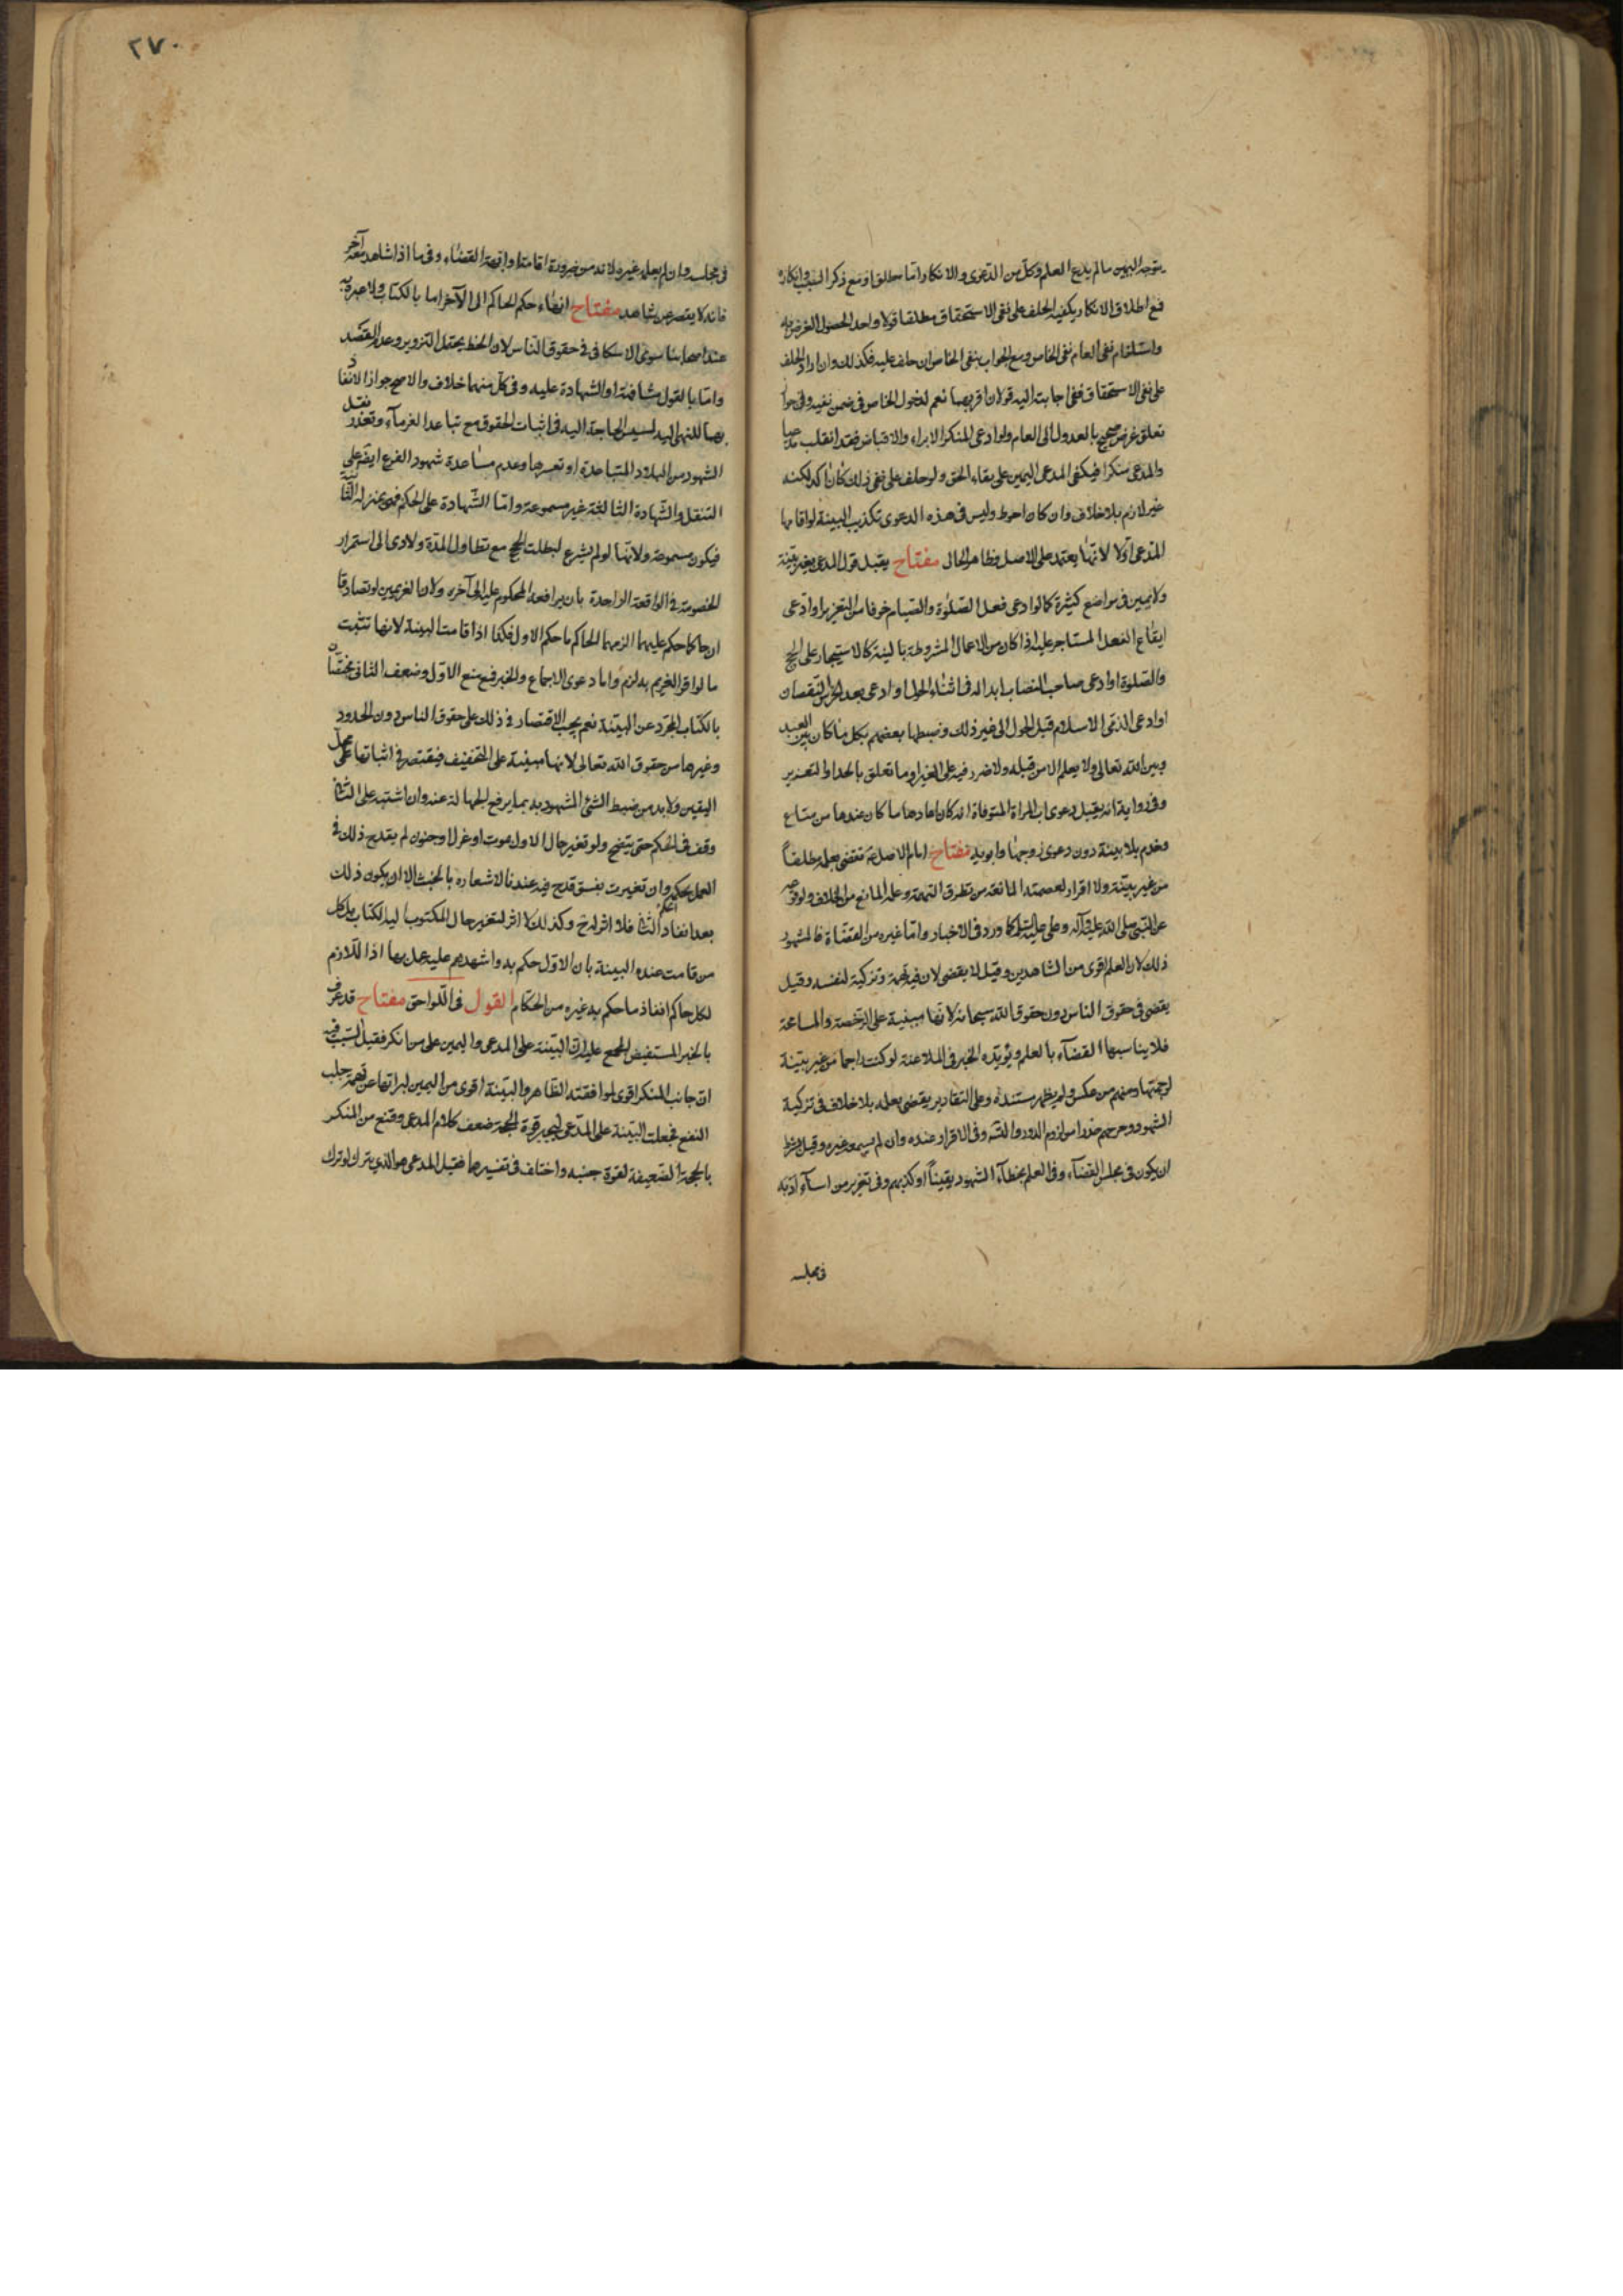 يتوجه اليمين ما لم يدع العلم وكل من الدعوى والانكار اما مطلق او مع ذكر السبب وانكاره
فمع اطلاق الانكار يكفيه الحلف على نفى الاستحقاق مطلقا قولا واحدا لحصول الغرض به
واستلزام نفى العام نفى الخاص ومع الجواب بنفى الخاص ان حلف عليه فكذلك وان اراد الحلف
على نفى الاستحقاق ففى اجابته اليه قولان اقربهما نعم لدخول الخاص فى ضمن نفيه وفى جواز
تعلق غرض صحيح بالعدول الى العام ولو ادعى المنكر الابراء والاقباض فقد انقلب مدعيا
والمدعى منكرا فيكفى المدعى اليمين على بقاء الحق ولو حلف على نفى ذلك كان آكد لكنه
غير لازم بلا خلاف وان كان احوط وليس فى هذه الدعوى تكذيب البينة لو اقامها
المدعى اولا لانها يعتمد على الاصل وظاهر الحال مفتاح يقبل قول المدعى بغير بينة
ولا يمين فى مواضع كثيرة كما لو ادعى فعل الصلوة والصيام خوفا من التعزير او ادعى
ايقاع الفعل المستاجر عليه اذا كان من الاعمال المشروطة بالنية كالاستيجار على الحج
والصلوة او ادعى صاحب النصاب ابداله فى اثناء الحول او ادعى بعد الخرص النقصان
او ادعى الذمى الاسلام قبل الحول الى غير ذلك وضبطها بعضهم بكل ما كان بين العبد
وبين الله تعالى ولا يعلم الا من قبله ولا ضرر فيه على الغير او ما تعلق بالحد او التعزير
وفى رواية انه يقبل دعوى اب المراة المتوفاة انه كان اعارها ما كان عندها من متاع
وخدم بلا بينة دون دعوى زوجها وابويه مفتاح امام الاصل عم يقضى بعلمه مطلقاً
من غير بينة ولا اقرار لعصمته المانعة من تطرق التهمة وعلمه المانع من الخلاف ولوقوعه
عن النبى صلى الله عليه وآله وعلى عليه السلم كما ورد فى الاخبار واما غيره من القضاة فالمشهور
ذلك لان العلم اقوى من الشاهدين وقيل لا يقضى لان فيه تهمة وتزكية لنفسه وقيل
يقضى فى حقوق الناس دون حقوق الله سبحانه لانها مبنية على الرخصة والمسامحة
فلا يناسبها القضاء بالعلم ويؤيده الخبر فى الملاعنة لو كنت راجما من غير بينة
لرجمتها ومنهم من عكس ولم يظهر مستنده وعلى التقادير يقضى بعلمه بلا خلاف فى تزكية
الشهود وجرحهم حذرا من لزوم الدور والتسه وفى الاقرار عنده وان لم يسمعه غيره وقيل بشرط
ان يكون فى مجلس القضاء وفى العلم بخطاء الشهود يقيناً او كذبهم وفى تعزير من اساء ادبه
فى مجلسه
٢٧٠
فى مجلسه وان لم يعلمه غيره لانه من ضرورة اقامة ابهة القضاء وفى ما اذا شاهد معه آخر
فانه لا يقصر عن شاهد مفتاح انهاء حكم الحاكم الى الآخر اما بالكتاب ولا عبرة به
عند اصحابنا سوى الاسكافى فى حقوق الناس لان الخط يحتمل التزوير وعدم القصد
واما بالقول مشافهة او الشهادة عليه وفى كل منهما خلاف والاصح جواز الانفاذ
بهما للمنهى اليه لمسيس الحاجة اليه فى اثبات الحقوق مع تباعد الغرماء وتعذر نقل
الشهود من البلاد المتباعدة او تعسرها وعدم مساعدة شهود الفرع ايضا على
التنقل والشهادة الثالثة غير مسموعة واما الشهادة على الحكم فهى بمنزلة الثانية
فيكون مسموعة ولانها لو لم يشرع لبطلت الحجج مع تطاول المدة ولادى الى استمرار
الخصومة فى الواقعة الواحدة بان يرافعه المحكوم عليه الى آخر ولان الغريمين لو تصادقا
ان حاكما حكم عليهما الزمهما الحاكم ما حكم الاول فكذا اذا قامت البينة لانها تثبت
ما لو اقر الغريم به لزم واما دعوى الاجماع والخبر فمع منع الاول وضعف الثانى مختصان
بالكتاب المجرد عن البينة نعم يجب الاقتصار فى ذلك على حقوق الناس دون الحدود
وغيرها من حقوق الله تعالى لانها مبنية على التخفيف فيقتصر فى اثباتها على محل
اليقين ولا بد من ضبط الشئ المشهود به بما يرفع الجهالة عنه وان اشتبه على الثانى
وقف فى الحكم حتى يتضح ولو تغير حال الاول بموت او عزل او جنون لم يقدح ذلك فى
العمل بحكمه وان تغيرت بفسق قدح فيه عندنا لاشعاره بالخبث الا ان يكون ذلك
بعد انفاذ الثانى فلا اثر له ح وكذلك لا اثر لتغير حال المكتوب اليه الكتاب بل كل
من قامت عنده البينة بان الاول حكم به واشهدهم عليه عمل بها اذ اللازم
لكل حاكم انفاذ ما حكم به غيره من الحكام القول فى اللواحق مفتاح قد عرف
بالخبر المستفيض المجمع عليه ان البينة على المدعى واليمين على من انكر فقيل السبب فيه
ان جانب المنكر اقوى لموافقته الظاهر والبينة اقوى من اليمين لبراتها عن تهمة جلب
النفع فجعلت البينة على المدعى لتجبر قوة الحجة ضعف كلام المدعى وقنع من المنكر
بالحجة الضعيفة لقوة جنبه واختلف فى تفسيرها فقيل المدعى هو الذى يترك لو ترك